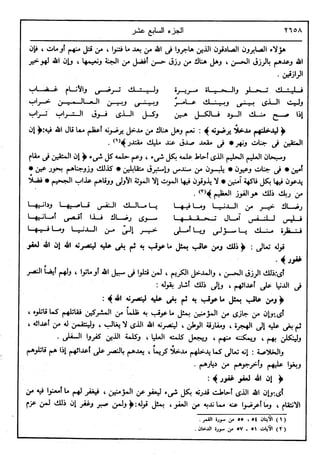 ٢٦٥٨
الجزء السابع عشر
هؤلاء الصابرون الصادقون الذين هاجروا فى الله من بعد ما فتنوا ، من قتل منهم أو مات ، فإن
الله وعدهم بالرزق الحسن ، وهل هناك من رزق حسن أفضل من الجنة ونعيمها ، وإن الله لهو خير
الرازقين .
فليتك تحلو والحياة مريرة وليتك ترضى والأنام غضاب
وليت الذى بينى وبينك عامر وبينى وبين العالمين خراب
إذا صح منك الود فالكل هين وكل الذى فوق التراب تراب
﴿ ليدخلنهم مدخلا يرضونه ﴾ : نعم وهل هناك من مدخل يرضونه أعظم مما قال الله فيه : ﴿ إن
المتقين فى جنات ونهر * فى مقعد صدق عند مليك مقتدر ﴾(١) .
وسبحان العليم الحليم الذى أحاط علمه بكل شىء ، وعم حلمه كل شىء ﴿ إن المتقين فى مقام
أمين * فى جنات وعيون * يلبسون من سندس وإستبرق متقابلين * كذلك وزوجناهم بحور عين *
يدعون فيها بكل فاكهة آمنين * لا يذوقون فيها الموت إلا الموتة الأولى ووقاهم عذاب الجحيم * فضلا
من ربك ذلك هو الفوز العظيم ﴾(٢) .
رضاك خير من الدنيا وما فيها يا مالك النفس قاصيها ودانيها
فليس للنفس آمال تحققها سوى رضاك فذا أقصى أمانيها
فنظرة منك يا سؤلى ويا أملى خير إلى من الدنيا وما فيها
قوله تعالى : ﴿ ذلك ومن عاقب بمثل ما عوقب به ثم بغى عليه لينصرنه الله إن الله لعفو
غفور ﴾ .
أى : ذلك الرزق الحسن ، والمدخل الكريم ، لمن قتلوا فى سبيل الله أو ماتوا ، ولهم أيضا النصر
فى الدنيا على أعدائهم ، وإلى ذلك أشار بقوله :
﴿ ومن عاقب بمثل ما عوقب به ثم بغى عليه لينصرنه الله ﴾ :
أى : وإن من جازى من المؤمنين بمثل ما عوقب به ظلما من المشركين فقاتلهم كما قاتلوه ،
ثم بغى عليه إلى الهجرة ، ومفارقة الوطن ، لينصرنه الله الذى لا يغالب ، ولينتقمن له من أعدائه ،
وليتكلن بهم ، ويمكننه منهم ، ويجعل كلمته العليا ، وكلمة الذين كفروا السفلى .
والخلاصة : إنه تعالى كما يدخلهم مدخلا كريما ، يعدهم بالنصر على أعدائهم إذا هم قاتلوهم
وبغوا عليهم وأخرجوهم من ديارهم .
﴿ إن الله لعفو غفور ﴾ :
أى : وإن الله الذى أحاطت قدرته بكل شىء ليعفو عن المؤمنين ، فيغفر لهم ما أمعنوا فيه من
الانتقام ، وما أعرضوا عنه مما ندبه من العفو ، بمثل قوله : ﴿ ولمن صبر وغفر إن ذلك لمن عزم
(١) الآيتان ٥٤ ، ٥٥ من سورة القمر .
(٢) الآيات ٥١ ـ ٥٧ من سورة الدخان .